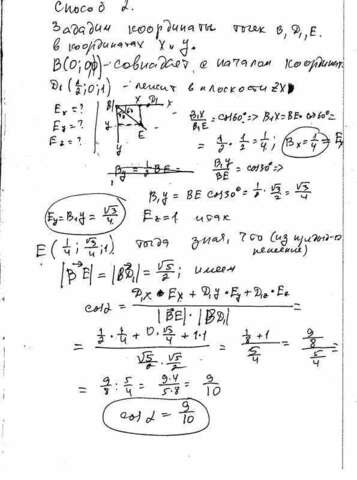 Способ 2.
Зададим координаты точек B, D₁, E.
в координатах x и y.
B(0;0;0) - совпадает с началом координат.
D₁(1/2;0;1) - лежит в плоскости ZX
Eₓ = ?
E_y = ?
E_z = ?
B₁ X D₁ X
y E
y
B₁X/B₁E = cos60° => B₁X = BE · cos60° =
= 1/2 · 1/2 = 1/4; Bₓ = 1/4 = Eₓ
B₁y/BE = cos30° =>
B₁y = BE cos30° = 1/2 · √3/2 = √3/4
E_y = B₁y = √3/4 E_z = 1 итак
E(1/4; √3/4; 1) тогда зная, что (из
решения)
|BE| = |BD₁| = √5/2; имеем
cos α = (D₁x · Eₓ + D₁y · E_y + D₁z · E_z) / (|BE| · |BD₁|) =
= (1/2 · 1/4 + 0 · √3/4 + 1·1) / (√5/2 · √5/2) = (1/8 + 1) / (5/4) = (9/8) / (5/4) =
= 9/8 : 5/4 = 9·4/5·8 = 9/10
cos α = 9/10